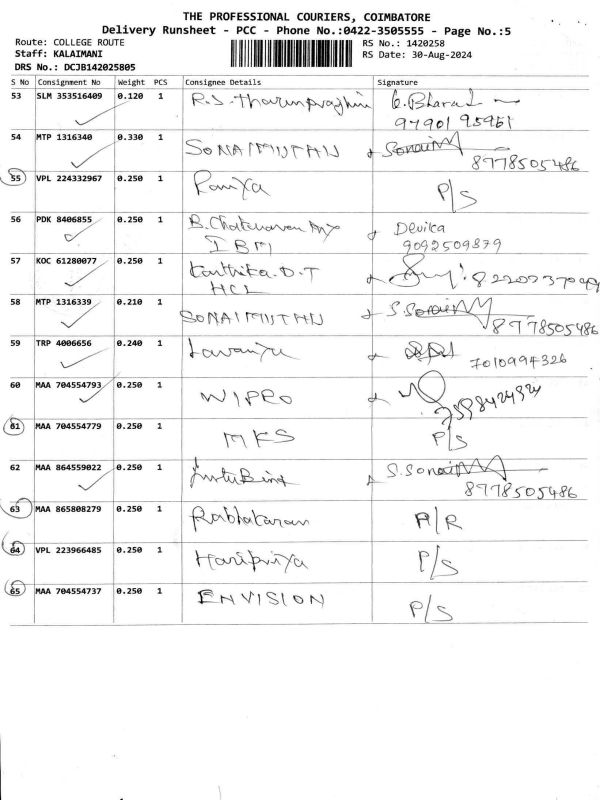 THE PROFESSIONAL COURIERS, COIMBATORE
Delivery Runsheet - PCC - Phone No.:0422-3505555 - Page No.:5
Route: COLLEGE ROUTE RS No.: 1420258
Staff: KALAIMANI RS Date: 30-Aug-2024
DRS No.: DCJB142025805
S No Consignment No Weight PCS Consignee Details Signature
53 SLM 353516409 0.120 1 R.S. G.Bharat
97901 95961
54 MTP 1316340 0.330 1 SONAIMUTHU Sonai
8778505486
55 VPL 224332967 0.250 1 P/S
56 PDK 8406855 0.250 1 B. Devika
IBM 9092509879
57 KOC 61280077 0.250 1 Karthika.D.T
HCL
58 MTP 1316339 0.210 1 SONAIMUTHU S.Sonai
8778505486
59 TRP 4006656 0.240 1 Lavanya 7010994326
60 MAA 704554793 0.250 1 WIPRO
61 MAA 704554779 0.250 1 MKS P/S
62 MAA 864559022 0.250 1 S.Sonai
8778505486
63 MAA 865808279 0.250 1 Prabhakaran A/R
64 VPL 223966485 0.250 1 Haripriya P/S
65 MAA 704554737 0.250 1 ENVISION P/S